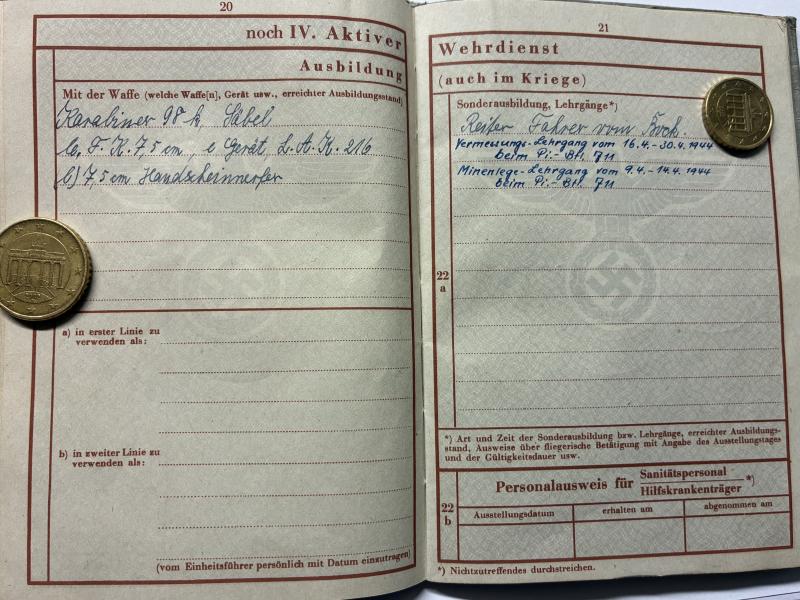 20
noch IV. Aktiver
Ausbildung
Mit der Waffe (welche Waffe[n], Gerät usw., erreichter Ausbildungsstand)
Karabiner 98 k, Säbel
F. K. 7,5 cm, Gerät, L. A. K. 216
7,5 cm
a) in erster Linie zu
verwenden als:
b) in zweiter Linie zu
verwenden als:
(vom Einheitsführer persönlich mit Datum einzutragen)
21
Wehrdienst
(auch im Kriege)
Sonderausbildung, Lehrgänge*)
Reiter Fahrer vom Bock.
Vermessungs-Lehrgang vom 16.4.-30.4.1944
beim Pi.-Btl. 711
Minenlege-Lehrgang vom 9.4.-14.4.1944
beim Pi.-Btl. 711
22
a
*) Art und Zeit der Sonderausbildung bzw. Lehrgänge, erreichter Ausbildungs-
stand, Ausweise über fliegerische Betätigung mit Angabe des Ausstellungstages
und der Gültigkeitsdauer usw.
22
b
Personalausweis für Sanitätspersonal
Hilfskrankenträger *)
Ausstellungsdatum erhalten am abgenommen am
*) Nichtzutreffendes durchstreichen.